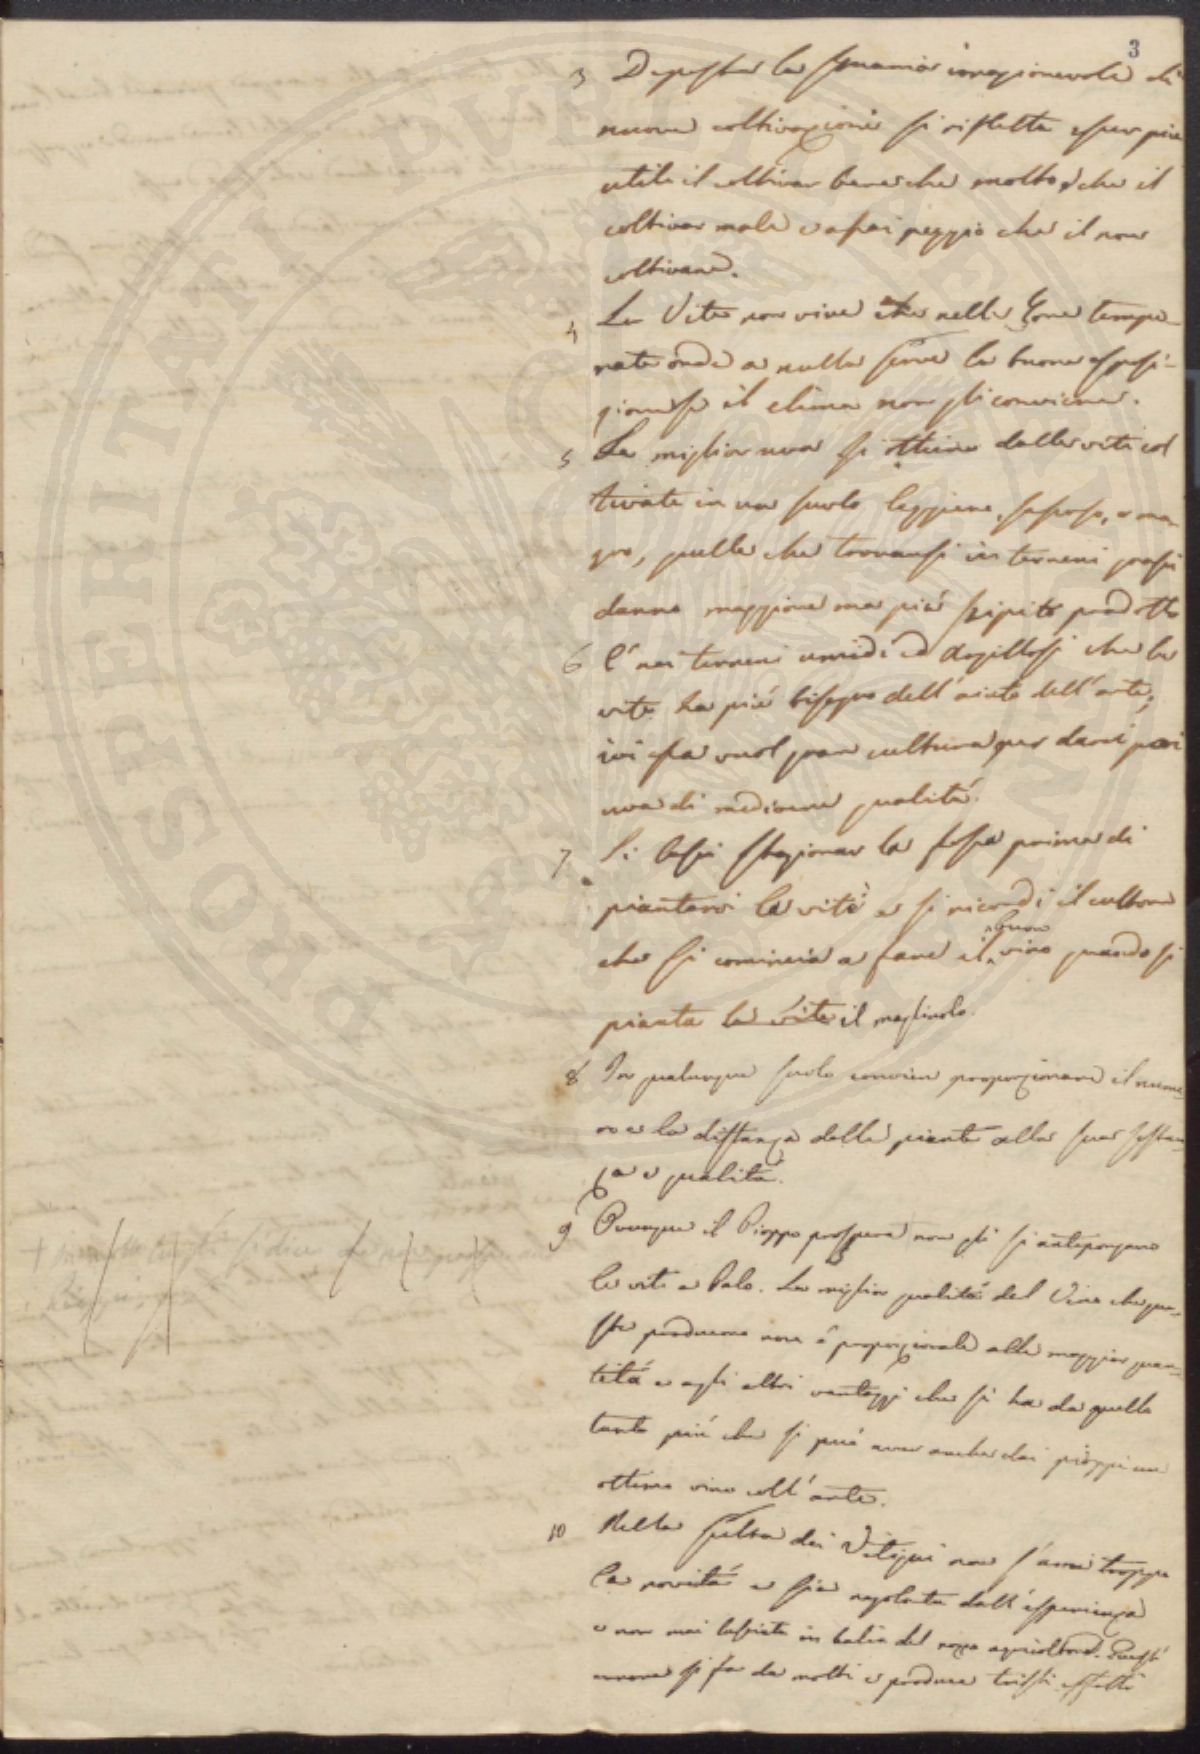 3
3 Deposta la smania irragionevole di
nuove coltivazioni si rifletta esser più
utile il coltivar bene che molto, e che il
coltivar male è assai peggio che il non
coltivare.
4 La Vite non vive che nelle Zone tempe-
rate onde a nulla serve la buona esposi-
zione se il clima non gli conviene.
5 La miglior uva si ottiene dalle viti col
tivate in un suolo leggiero, sassoso, e ma-
gro, quelle che trovansi in terreni grassi
danno maggiore ma più scipito prodotto
6 È nei terreni umidi ed argillosi che la
vite ha più bisogno dell'aiuto dell'arte;
ivi essa vuol gran cultura per darci poi
uva di mediocre qualità.
7 Si lasci stagionar la fossa prima di
piantarvi le viti e si ricordi il cultore
che si comincia a fare il buon vino quando si
pianta la vite il magliuolo.
8 In qualunque suolo convien proporzionare il nume-
ro e la distanza delle piante alla sua sostan-
za e qualità.
9 Ovunque il Pioppo prospera non gli si antepongano
le viti a Palo. La miglior qualità del Vino che que-
ste producono non è proporzionale alla maggior quan-
tità e agli altri vantaggi che si ha da quelle
tanto più che si può aver anche dai pioppi un
ottimo vino coll'arte.
10 Nella scelta dei Vitigni non s'ami troppo
la novità e sia regolata dall'esperienza
e non mai lasciata in balia del rozzo agricoltore. Questi
errore si fa da molti e produce tristi effetti
PROSPERITATI PUBLICAE